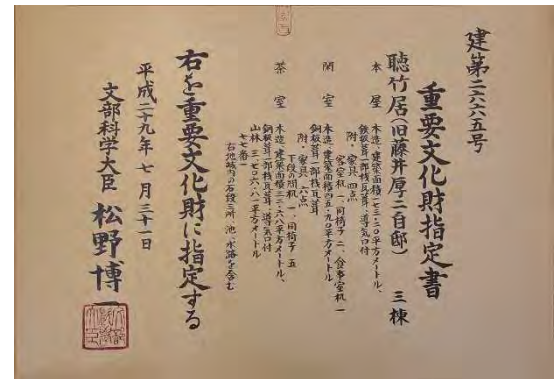 建第二六六五号
重要文化財指定書
聴竹居(旧藤井厚二自邸) 三棟
本屋 木造、建築面積一七三・二〇平方メートル、
鉄板葺一部桟瓦葺、導気口付
附・家具 四点
客室机 一、同椅子 二、食事室机 一
閑室 木造、建築面積四五・九〇平方メートル
銅板葺一部桟瓦葺
附・家具 六点
下段の間机 一、同椅子 五
茶室 木造、建築面積三二・六八平方メートル、
銅板葺一部桟瓦葺、導気口付
山林 三一七〇六・八一平方メートル
七七番一
右地域内の石段三所、池、水路を含む
右を重要文化財に指定する
平成二十九年七月三十一日
文部科学大臣 松野博一